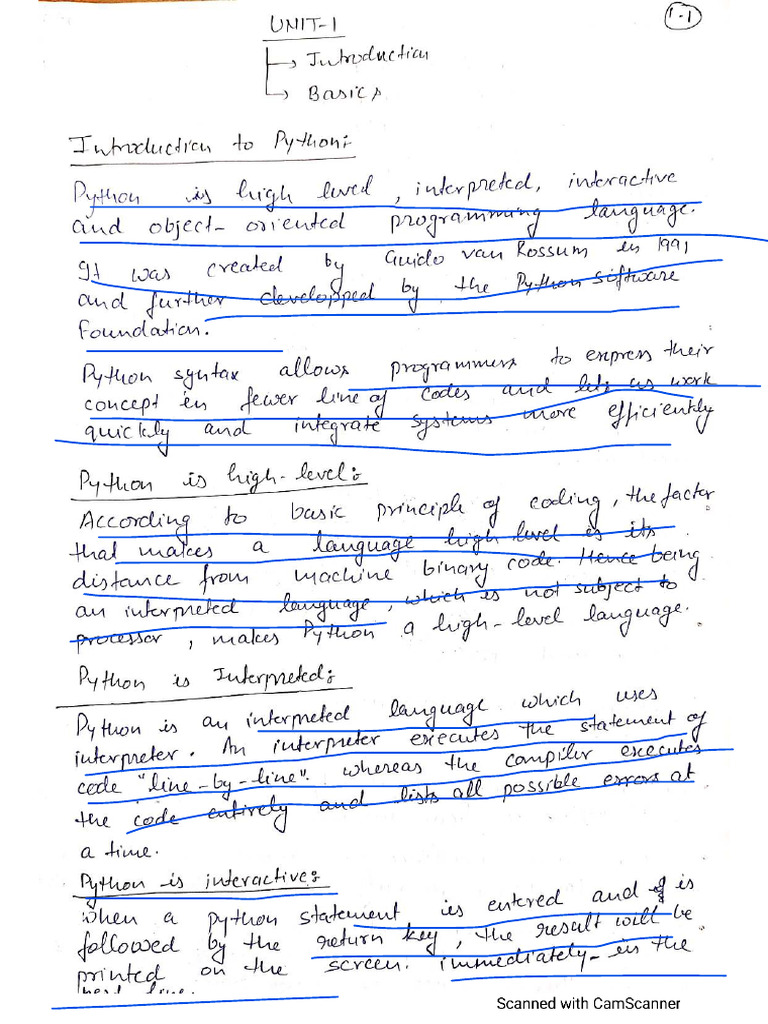 1.1
UNIT-1
Introduction
Basics
Introduction to Python:
Python is high level, interpreted, interactive
and object-oriented programming language.
It was created by Guido van Rossum in 1991
and further developped by the Python Software
Foundation.
Python syntax allows programmers to express their
concept in fewer line of codes and lets us work
quickly and integrate systems more efficiently
Python is high-level:
According to basic principle of coding, the factor
that makes a language high level is its
distance from machine binary code. Hence being
an interpreted language, which is not subject to
processor, makes Python a high-level language.
Python is Interpreted:
Python is an interpreted language which uses
interpreter. An interpreter executes the statement of
code "line-by-line". whereas the compiler executes
the code entirely and lists all possible errors at
a time.
Python is interactive:
when a python statement is entered and is
followed by the return key, the result will be
printed on the screen. immediately- in the
next line.
Scanned with CamScanner